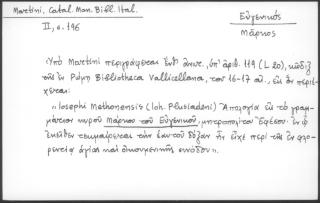 Martini, Catal. Man. Bibl. Ital.
II, σ. 196
Εὐγενικός
Μάρκος
Ὑπὸ Martini περιγράφεται ἔνθ' ἀνωτ., ὑπ' ἀριθ. 119 (L 20), κῶδιξ
τῆς ἐν Ρώμῃ Bibliotheca Vallicellana, τοῦ 16-17 αἰ., ἐν ᾧ περιέ-
χεται:
"Iosephi Methonensis (Ioh. Plusiadeni) Ἀπολογία εἰς τὸ γραμ-
μάτιον κυροῦ Μάρκου τοῦ Εὐγενικοῦ, μητροπολίτου Ἐφέσου. ἐν ᾧ
ἐκτίθεται τὴν ἑαυτοῦ δόξαν ἣν εἶχε περὶ τῆς ἐν Φλω-
ρεντίᾳ ἁγίας καὶ οἰκουμενικῆς συνόδου".